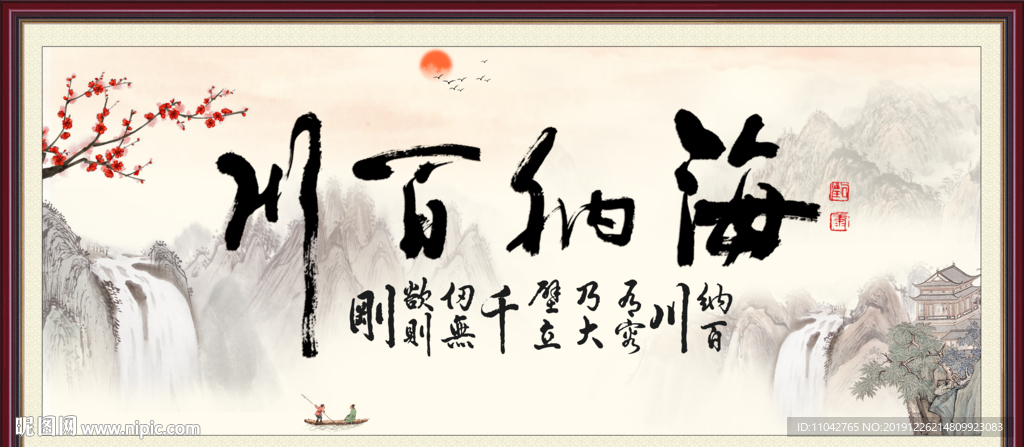 海纳百川
纳百
川
有容
乃大
壁立
千
仞無
欲則
剛
昵图网
www.nipic.com
ID:11042765 NO:20191226214809923083